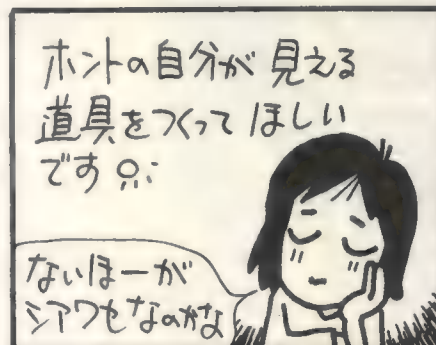 ホントの自分が見える
道具をつくってほしい
です
ないほーが
シアワセなのかな